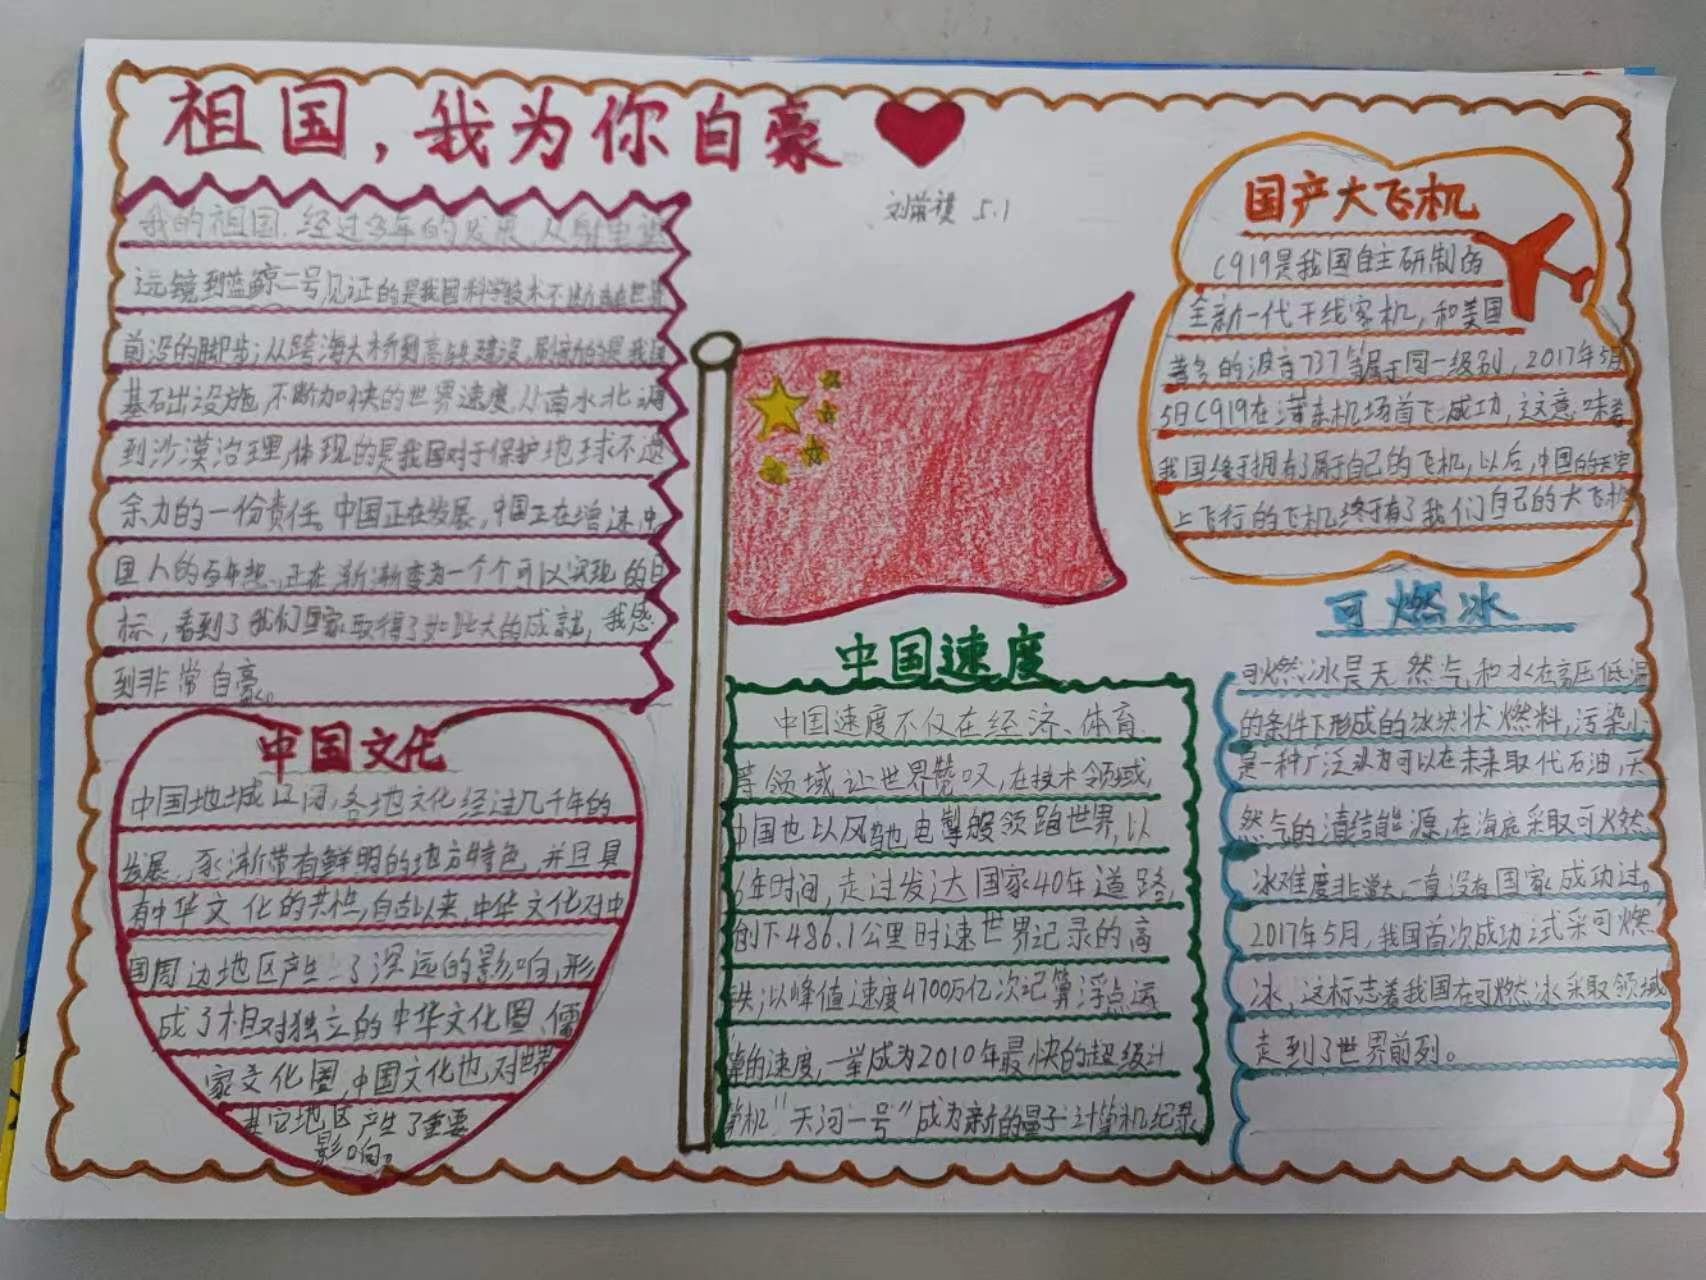 祖国，我为你自豪
5.1
我的祖国，经过多年的发展，从射电望
远镜到蓝鲸二号见证的是我国科学技术不断
前沿的脚步；从跨海大桥到高铁建设，的是我国
基石出设施，不断加快的世界速度，从南水北调
到沙漠治理，体现的是我国对于保护地球不遗
余力的一份责任。中国正在发展，中国正在增速，中
国人的百年想，正在渐渐变为一个个可以实现的目
标，看到了我们国家取得了如此大的成就，我感
到非常自豪。
中国文化
中国地域辽阔，各地文化经过几千年的
发展，逐渐带有鲜明的地方特色，并且具
有中华文化的共性，自古以来，中华文化对中
国周边地区产生了深远的影响，形
成了相对独立的中华文化圈、儒
家文化圈，中国文化也对世界
其它地区产生了重要
影响。
中国速度
中国速度不仅在经济、体育
等领域让世界赞叹，在技术领域，
中国也以风驰电掣般领跑世界，以
6年时间，走过发达国家40年道路，
创下486.1公里时速世界记录的高
铁；以峰值速度4700万亿次记算浮点运
算的速度，一举成为2010年最快的超级计
算机“天河一号”成为新的量子计算机纪录
国产大飞机
C919是我国自主研制的
全新一代干线客机，和美国
著名的波音737等属于同一级别，2017年5月
5日C919在浦东机场首飞成功，这意味着
我国终于拥有了属于自己的飞机，以后，中国的天空
上飞行的飞机终于有了我们自己的大飞机
可燃冰
可燃冰是天然气和水在高压低温
的条件下形成的冰块状燃料，污染小
是一种广泛认为可以在未来取代石油，天
然气的清洁能源，在海底采取可燃
冰难度非常大，一直没有国家成功过。
2017年5月，我国首次成功试采可燃
冰，这标志着我国在可燃冰采取领域
走到了世界前列。